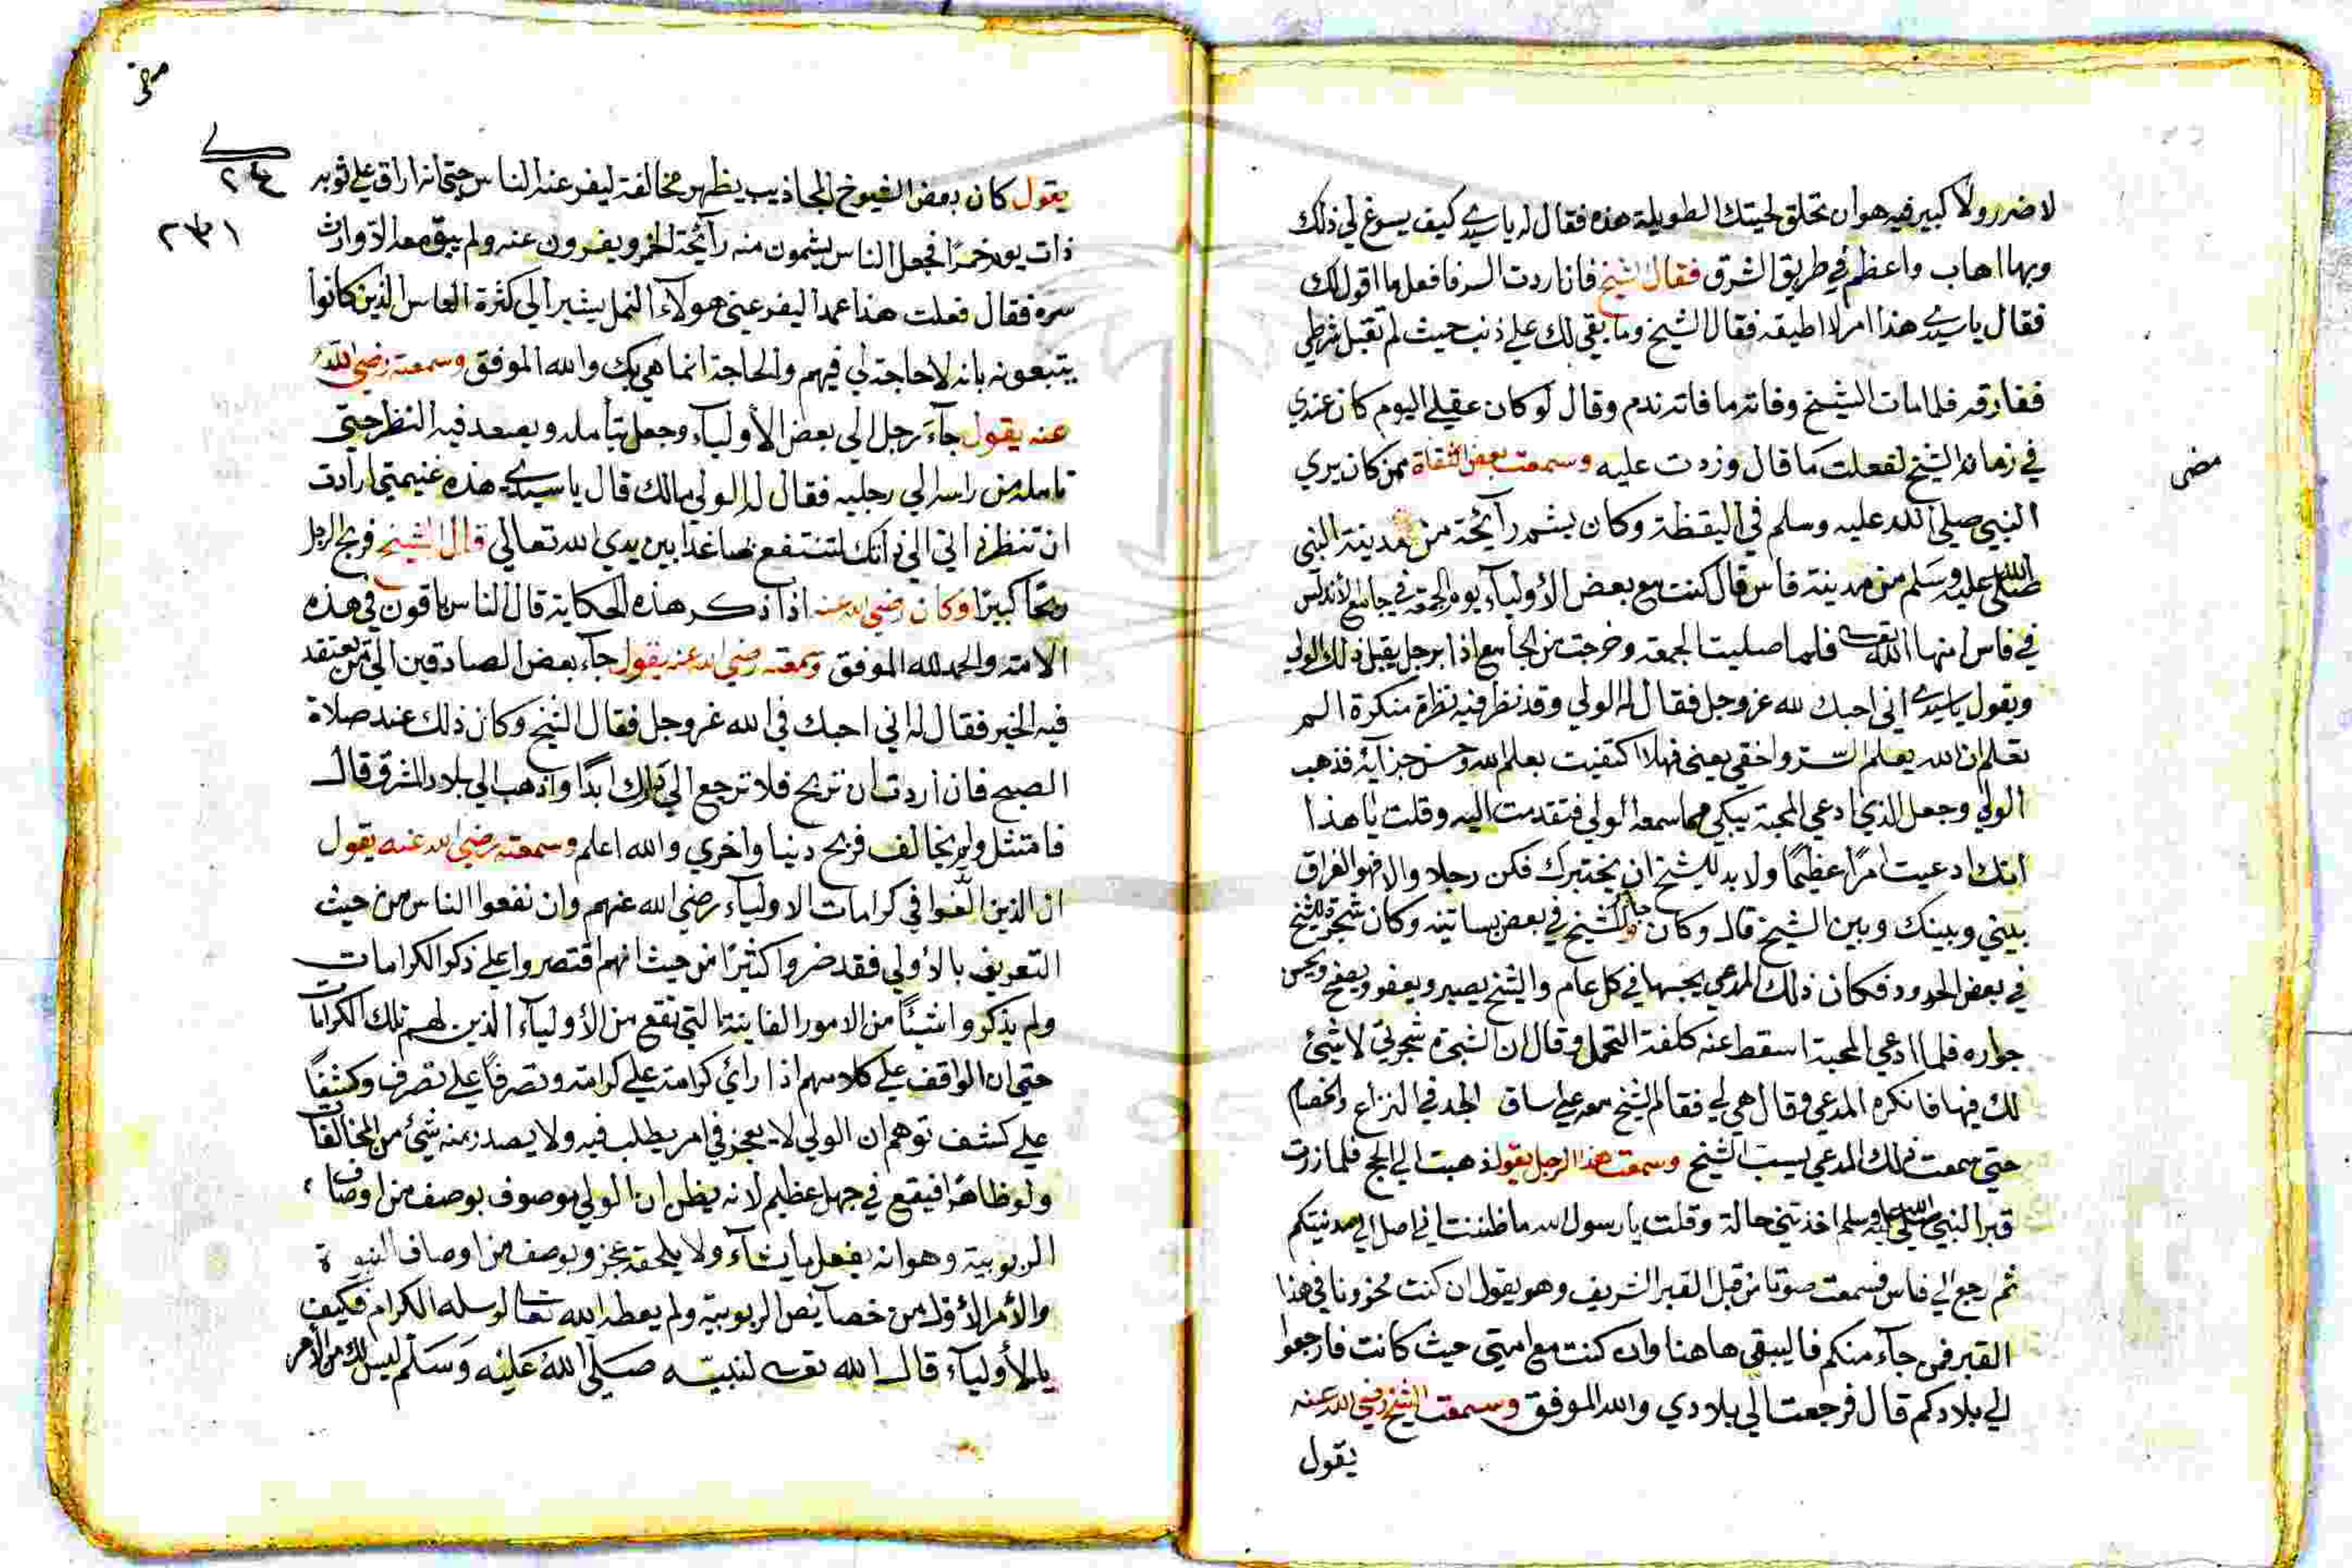 لا ضرر ولا كبير فيه هو ان تحلق لحيتك الطويلة هذه فقال له يا سيدي كيف يسوغ لي ذلك
وبها اهاب واعظم في طريق الشرق فقال الشيخ فان اردت السر فافعل ما اقول لك
فقال يا سيدي هذا امر لا اطيقه فقال الشيخ وما بقي لك علي ذنب حيث لم تقبل شرطي
ففارقه فلما مات الشيخ وفاته ما فاته ندم وقال لو كان عقلي اليوم كان عندي
في زمان الشيخ لفعلت ما قال وزدت عليه وسمعت بعض الثقاة ممن كان يري
مضى
النبي صلى الله عليه وسلم في اليقظة وكان يشم رآئحة من مدينة النبي
صلى الله عليه وسلم من مدينة فاس قال كنت مع بعض الأوليآء يوم الجمعة في جامع الأندلس
في فاس امنها الله تعـ فلما صليت الجمعة وخرجت من الجامع اذا برجل يقبل ذلك الولي
ويقول يا سيدي اني احبك لله عز وجل فقال له الولي وقد نظر فيه نظرة منكرة الم
تعلم ان الله يعلم السّر واخفي يعني فهلا اكتفيت بعلم الله وحسن جزآئه فذهب
الولي وجعل الذي ادعي المحبة يبكي مما سمعه الولي فتقدمت اليه وقلت يا هذا
انك ادعيت امرًا عظيمًا ولا بد للشيخ ان يختبرك فكن رجلا والا فهو الفراق
بيني وبينك وبين الشيخ قال وكان جار للشيخ في بعض بساتينه وكان شجرة للشيخ
في بعض الحدود فكان ذلك المدعي يجبها في كل عام والشيخ يصبر ويعفو ويصفح ويحسن
جواره فلما ادعي المحبة اسقط عنه كلفة التحمل وقال ان الشجرة شجرتي لا شيئ
لك فيها فانكره المدعي وقال هي لي فقال الشيخ معه علي ساق الجد في النزاع والخصام
حتي سمعت ذلك المدعي يسب الشيخ وسمعت هذا الرجل يقول ذهبت الي الحج فلما زرت
قبر النبي صلى الله عليه وسلم اخذتني حالة وقلت يا رسول الله ما ظننت اني اصل الي مدينتكم
ثم ارجع الي فاس فسمعت صوتا من قبل القبر الشريف وهو يقول ان كنت مخزونا في هذا
القبر فمن جآء منكم فاليبقي هاهنا وان كنت مع امتي حيث كانت فارجعوا
الي بلادكم قال فرجعت الي بلادي والله الموفق وسمعت الشيخ رضي الله عنه
يقول
٢٣١
يقول كان بعض الشيوخ المجاذيب يظهر مخالفة ليفر عنه الناس حتي انه اراق علي ثوبه
ذات يوم خمرًا فجعل الناس يشمون منه رآئحة الخمر ويفرون عنه ولم يبق معه الا وارث
سره فقال فعلت هذا عمدا ليفر عني هولآء النمل يشير الي كثرة الناس الذين كانوا
يتبعونه بانه لا حاجة لي فيهم والحاجة انما هي بك والله الموفق وسمعته رضي الله
عنه يقول جآء رجل الي بعض الأوليآء وجعل يتأمله ويصعد فيه النظر حتي
تامله من راسه الي رجليه فقال له الولي ما لك قال يا سيدي هذه غنيمتي ارادت
ان تنظر ذاتي الي ذاتك لتنتفع بها غدا بين يدي الله تعالي قال الشيخ فربح الرجل
ربحًا كبيرًا وكان رضي الله عنه اذا ذكر هذه الحكاية قال الناس باقون في هذه
الامة والحمد لله الموفق وسمعته رضي الله عنه يقول جآء بعض الصادقين الي من يعتقد
فيه الخير فقال له اني احبك في الله عز وجل فقال الشيخ وكان ذلك عند صلاة
الصبح فان اردت ان تربح فلا ترجع الي دارك ابدًا واذهب الي بلاد المشرق قال
فامتثل ولم يخالف فربح دنيا واخري والله اعلم وسمعته رضي الله عنه يقول
ان الذين الّفوا في كرامات الاوليآء رضي الله عنهم وان نفعوا الناس من حيث
التعريف بالأولي فقد ضروا كثيرًا من حيث انهم اقتصروا علي ذكر الكرامات
ولم يذكروا شيئًا من الامور الفانية التي تقع من الأوليآء الذين لهم تلك الكرامات
حتي ان الواقف علي كلامهم اذا رأي كرامة علي كرامة وتصرفًا علي تصرف وكشفًا
علي كشف توهم ان الولي لا يعجز في امر يطلب فيه ولا يصدر منه شيئ من المخالفات
ولو ظاهرًا فيقع في جهل عظيم لانه يظن ان الولي موصوف بوصف من اوصاف
الربوبية وهو انه يفعل ما يشآء ولا يلحقه عجز وبوصف من اوصاف النبوة
والأمر الأول من خصآيص الربوبية ولم يعطه الله تعالى لرسله الكرام فكيف
بالأوليآء قال الله تعـ لنبيّه صَلَّى اللهُ عَلَيْه وَسَلَّم ليس لك من الأمر